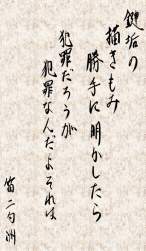 鍵垢の
描きもみ
勝手に明かしたら
犯罪だろうが
犯罪なんだよそれは
笛二匀洲